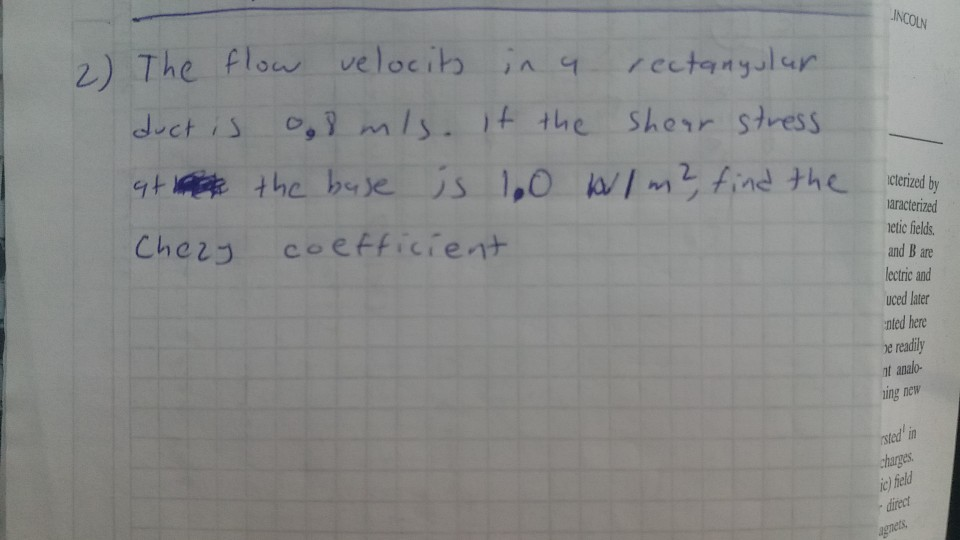 LINCOLN
2) The flow velocity in a rectangular
duct is 0,8 m/s. if the shear stress
at the base is 1,0 N/m², find the
Chezy coefficient
acterized by
naracterized
netic fields.
and B are
lectric and
uced later
ented here
be readily
nt analo-
ning new
rsted¹ in
charges.
ic) field
- direct
agnets,